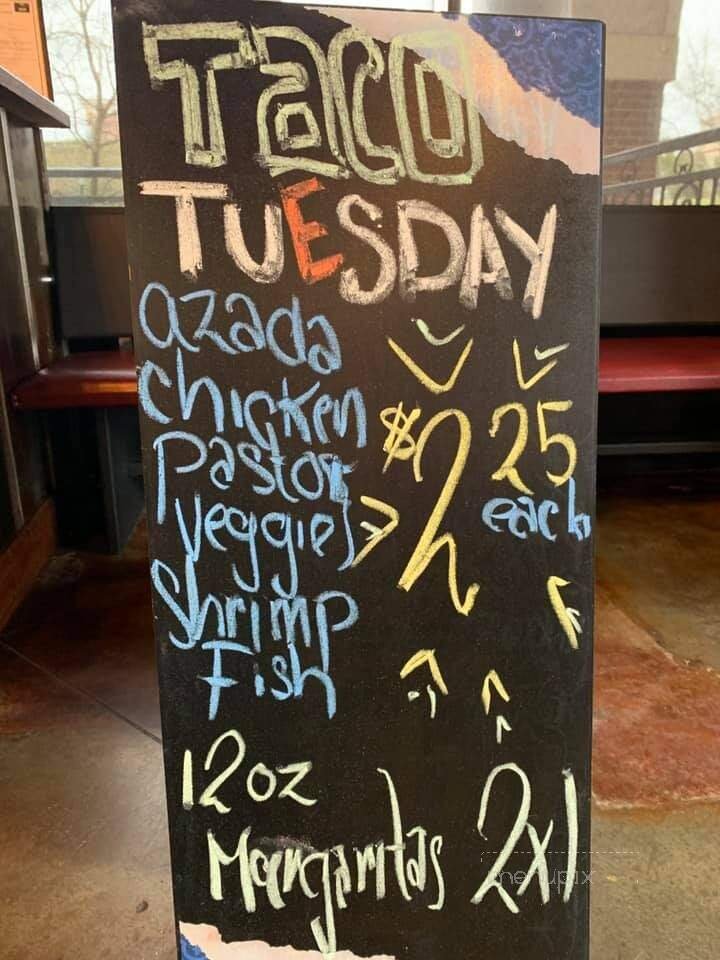 TaCO
TUESDAY
azada
chicken
Pastor
veggies
Shrimp
Fish
$2 25
each
12oz
Margaritas 2x1
menupix